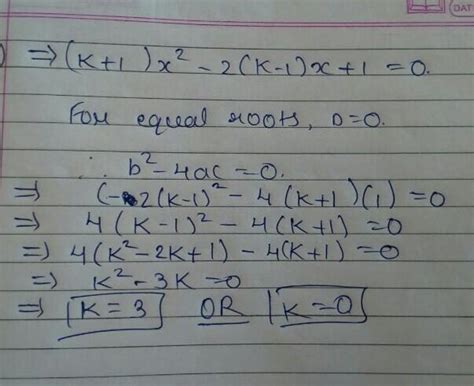 DAT
) ⇒ (K+1)x² - 2(K-1)x + 1 = 0.
For equal roots, D=0.
∴ b² - 4ac = 0.
⇒ (-2(K-1)² - 4(K+1)(1) = 0
⇒ 4(K-1)² - 4(K+1) = 0
⇒ 4(K²-2K+1) - 4(K+1) = 0
⇒ K² - 3K = 0
⇒ K = 3 OR K = 0